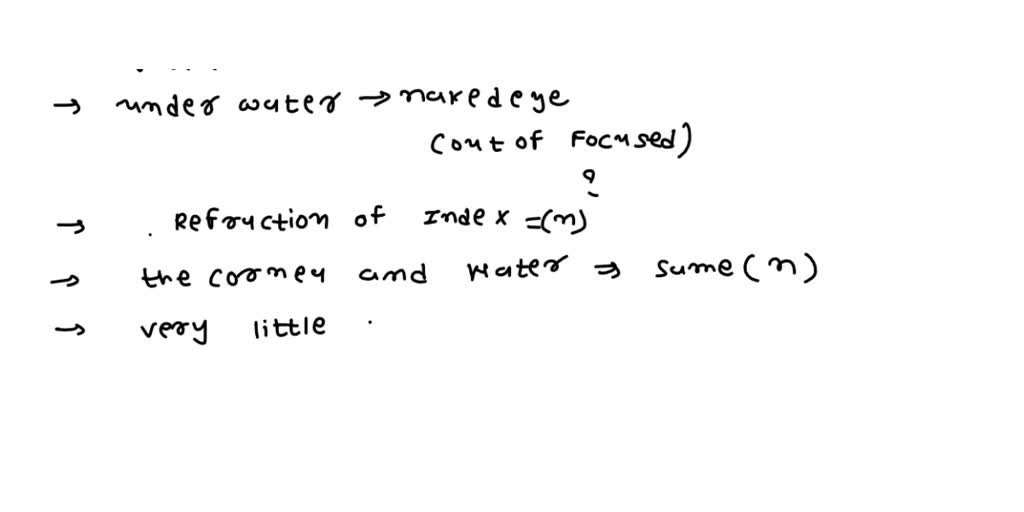 → under water → nakedeye
(out of Focused)
?
→ . Refraction of Index =(n)
→ the cornea and water ⇒ same (n)
→ very little .